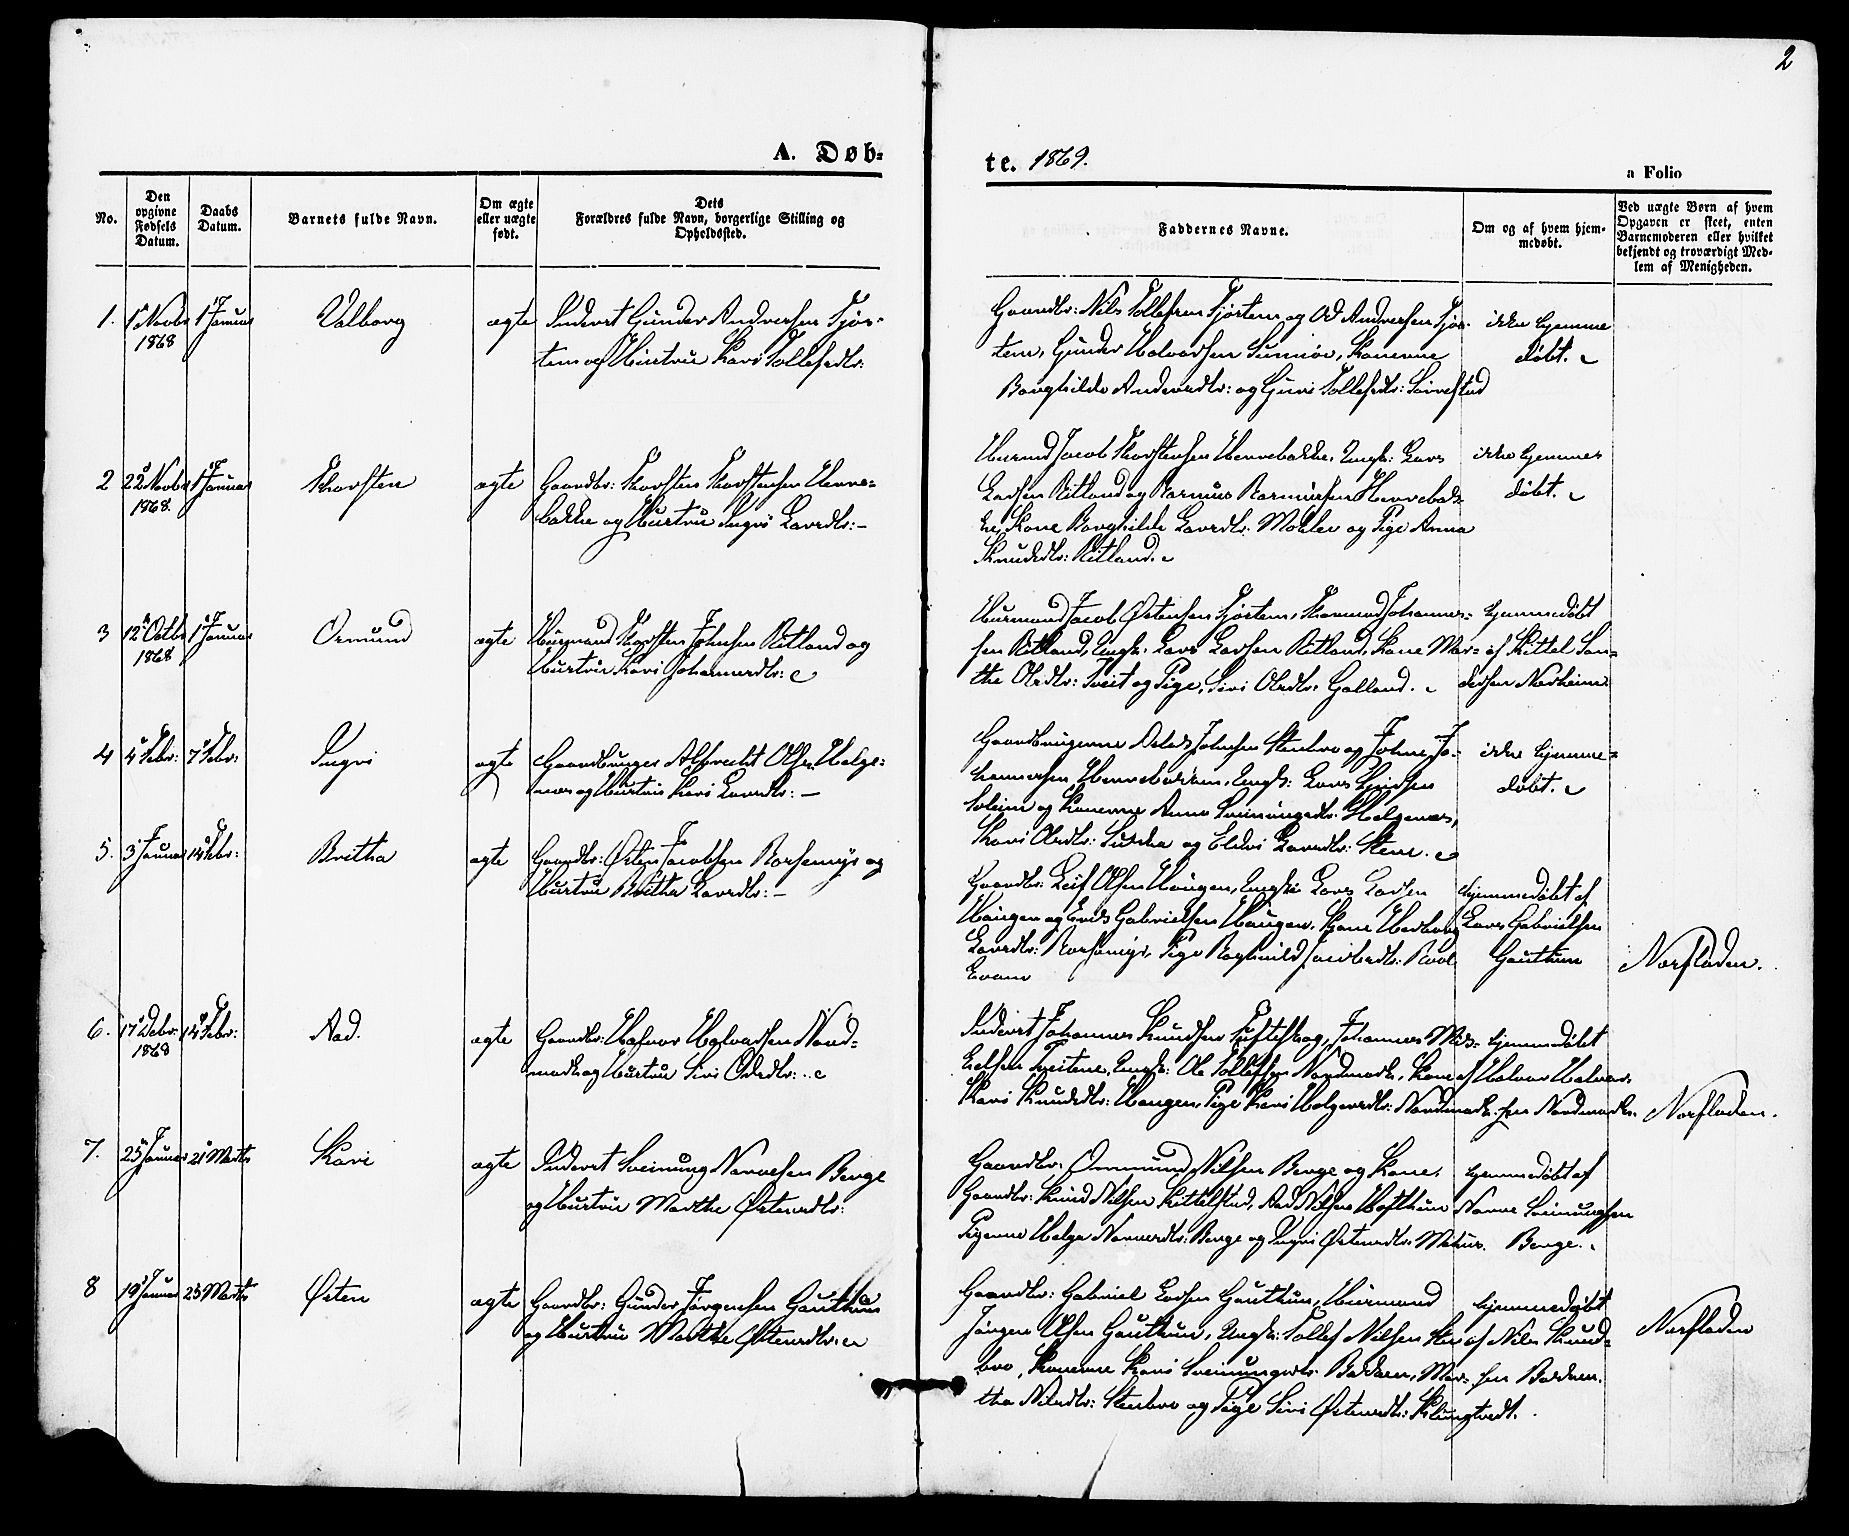 2
A. Døb-
te. 1869.
a Folio
No.
Den opgivne Fødsels Datum.
Daabs Datum.
Barnets fulde Navn.
Om ægte eller uægte født.
Dets Forældres fulde Navn, borgerlige Stilling og Opholdssted.
Faddernes Navne.
Om og af hvem hjemmedøbt.
Ved uægte Børn af hvem Opgaven er skeet, enten Barnemoderen eller hvilket bekjendt og troværdigt Medlem af Menigheden.
1. 1 Novbr 1868 1 Januar Valborg ægte Inderst Gunder Andersen Tjør-
tem og Hustru Kari Tollefsdtr:
Gaardbr: Nils Tollefsen Tjørtem og Od Andersen Tjør-
tem, Gunder Halvorsen Konerne
Borghilde Andersdtr: og Guri Tollefsdtr:
ikke hjemme
døbt.
2 22 Novbr 1868. 1 Januar Thorsten ægte Gaardbr: Thorsten Thorstensen Herre-
bakke og Hustru Ingri Larsdtr:-
Huusmd Jacob Thorstensen Herrebakke, Ungk: Lars
Larsen Ritland og Rasmus Rasmussen Herrebak-
ke, Kone Borghilde Larsdtr: Moklev og Pige Anna
Knudsdtr: Ritland.
ikke hjemme
døbt.
3 12 Octbr 1868 1 Januar Ormund ægte Husmand Thorsten Johnsen Ritland og
Hustru Kari Johannesdtr:
Husmand Jacob Østensen Tjørtem, Thormod Johannes-
sen Ritland, Ungk: Lars Larsen Ritland, Kone Mar-
the Olsdtr: Tveit og Pige, Siri Olsdtr: Galland.
hjemmedøbt
af Kittel San-
dersen Nerheim
4 4 Febr: 7 Febr: Ingri ægte Gaardbruger Albrecht Olsen Helge-
nes og Hustru Kari Larsdtr:-
Gaardbrugerne Johnsen Stenbro og Johnne Jo-
hannessen Herrebakken, Ungk: Lars
Soleim og Konerne Anne Sveinungsdtr: Helgenes,
Kari Olsdtr: og Eldri Larsdtr: Stene.
ikke hjemme-
døbt.
5. 3 Januar 14 Febr: Britha ægte Gaardbr: Østen Jacobsen Rorsemyr og
Hustru Britha Larsdtr:-
Gaardbr: Leif Olsen Haugen, Ungk: Lars Larsen
Haugen og Gabrielsen Haugen, Kone Herborg
Larsdtr: Rorsemyr, Pige Ragnild Jacobsdtr: Roal
hjemmedøbt af
Lars Gabrielsen
Gauthun
Norfladen.
6. 17 Debr. 1868 14 Febr: Aad. ægte Gaardbr: Halvor Halvorsen Nord-
mork og Hustru Siri Odsdtr:
Inderst Johannes Knudsen Tuftehog, Johannes Mik-
kelsen Tveitene, Ungk: Ole Tollefsen Nordmork, Kone
Kari Knudsdtr: Haugen, Pige Kari Holgersdtr: Nordmork.
hjemmedøbt
af Halvor Halvor-
sen Nordmork.
Norfladen.
7. 25 Januar 21 Marts Kari ægte Inderst Sveinung Narvesen Berge
og Hustru Marthe Østensdtr:
Gaardbr: Ommund Nilsen Berge og Kone,
Gaardbr: Knud Nilsen Kittelstud, Aad Nilsen Hofthun
Pigerne Helga Narvesdtr: Berge og Ingri Østensdtr: Mehus.
hjemmedøbt af
Narve Sveinungsen
Berge.
8 19 Januar 25 Marts Østen ægte Gaardbr: Gunder Jørgensen Gauthun
og Hustru Marthe Østensdtr:
Gaardbr: Gabriel Larsen Gauthun, Husmand
Jørgen Olsen Gauthun, Ungk: Tollef Nilsen Sten-
bro, Konerne Kari Sveinungsdtr: Bakken, Mar-
tha Nilsdtr: Stenbro og Pige Siri Østensdtr: Klungtvedt.
hjemmedøbt
af Nils Knud-
sen Bakken.
Norfladen